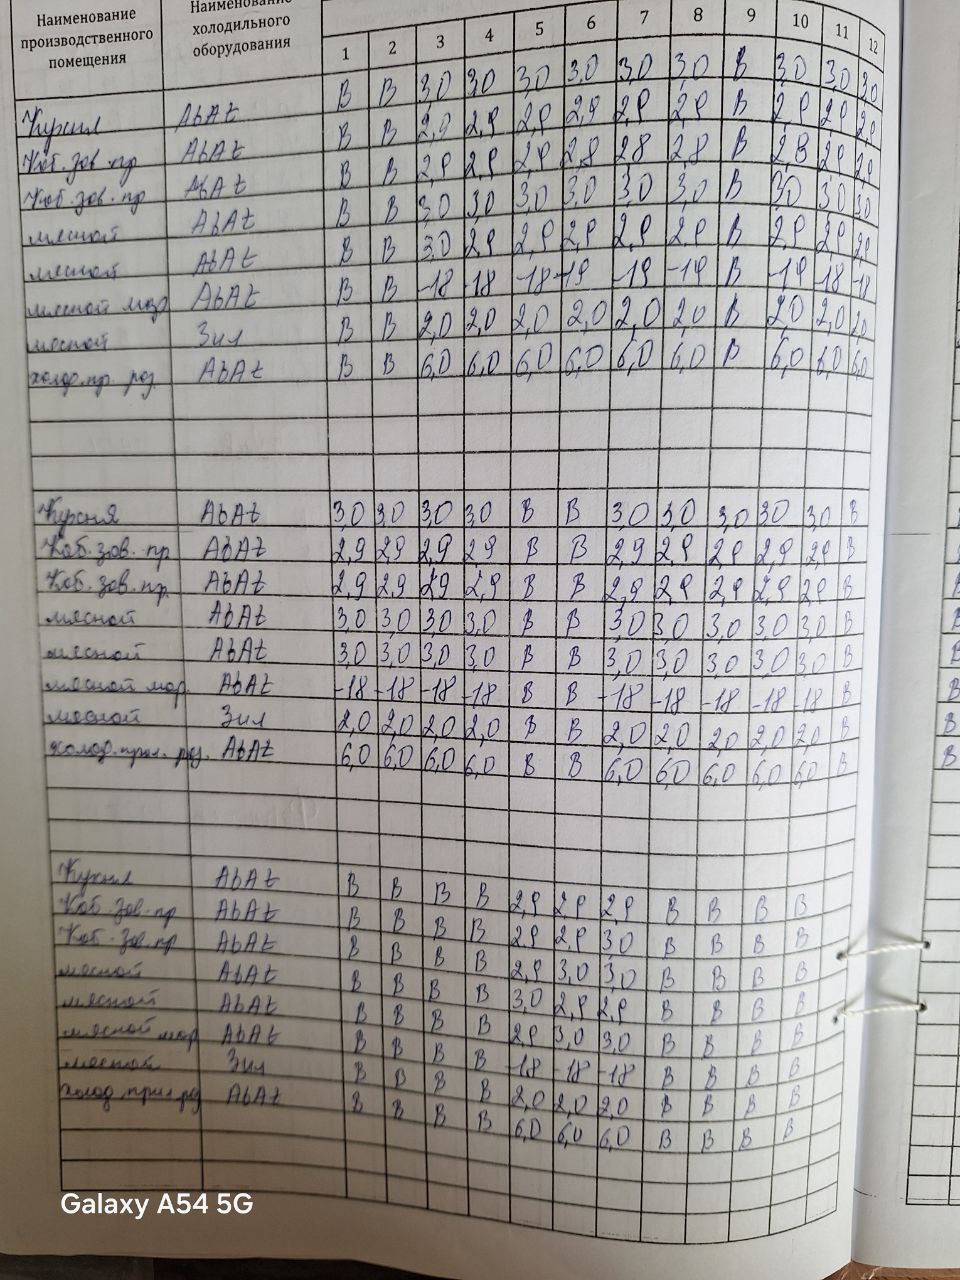 Наименование производственного помещения Наименование холодильного оборудования
1 2 3 4 5 6 7 8 9 10 11 12
Кухня Abat В В 3,0 3,0 3,0 3,0 3,0 3,0 В 3,0 3,0 3,0
Хоб. зов. пр Abat В В 2,9 2,9 2,9 2,9 2,9 2,9 В 2,9 2,9 2,9
Хоб. зов. пр Abat В В 2,9 2,9 2,9 2,8 2,8 2,8 В 2,8 2,9
мясной Abat В В 3,0 3,0 3,0 3,0 3,0 3,0 В 3,0 3,0 3,0
мясной Abat В В 3,0 2,9 2,9 2,9 2,9 2,9 В 2,9 2,9 2,9
мясной мор Abat В В -18 -18 -18 -19 -19 -19 В -19 -18 -18
мясной Зил В В 2,0 2,0 2,0 2,0 2,0 2,0 В 2,0 2,0 2,0
холод. пр. роз. Abat В В 6,0 6,0 6,0 6,0 6,0 6,0 В 6,0 6,0 6,0
Кухня Abat 3,0 3,0 3,0 3,0 В В 3,0 3,0 3,0 3,0 3,0 В
Хоб. зов. пр Abat 2,9 2,9 2,9 2,9 В В 2,9 2,9 2,9 2,9 2,9 В
Хоб. зов. пр. Abat 2,9 2,9 2,9 2,9 В В 2,9 2,9 2,9 2,9 2,9 В
мясной Abat 3,0 3,0 3,0 3,0 В В 3,0 3,0 3,0 3,0 3,0 В
мясной Abat 3,0 3,0 3,0 3,0 В В 3,0 3,0 3,0 3,0 3,0 В
мясной мор. Abat -18 -18 -18 -18 В В -18 -18 -18 -18 -18 В
мясной Зил 2,0 2,0 2,0 2,0 В В 2,0 2,0 2,0 2,0 2,0 В
холод. прил. роз. Abat 6,0 6,0 6,0 6,0 В В 6,0 6,0 6,0 6,0 6,0 В
Кухня Abat В В В В 2,9 2,9 2,9 В В В В
Хоб. зов. пр Abat В В В В 2,9 2,9 3,0 В В В В
Хоб. зов. пр Abat В В В В 2,9 3,0 3,0 В В В В
мясной Abat В В В В 3,0 2,9 2,9 В В В В
мясной Abat В В В В 2,9 3,0 3,0 В В В В
мясной мор Abat В В В В -18 -18 -18 В В В В
мясной Зил В В В В 2,0 2,0 2,0 В В В В
холод прил роз Abat В В В В 6,0 6,0 6,0 В В В В
Galaxy A54 5G